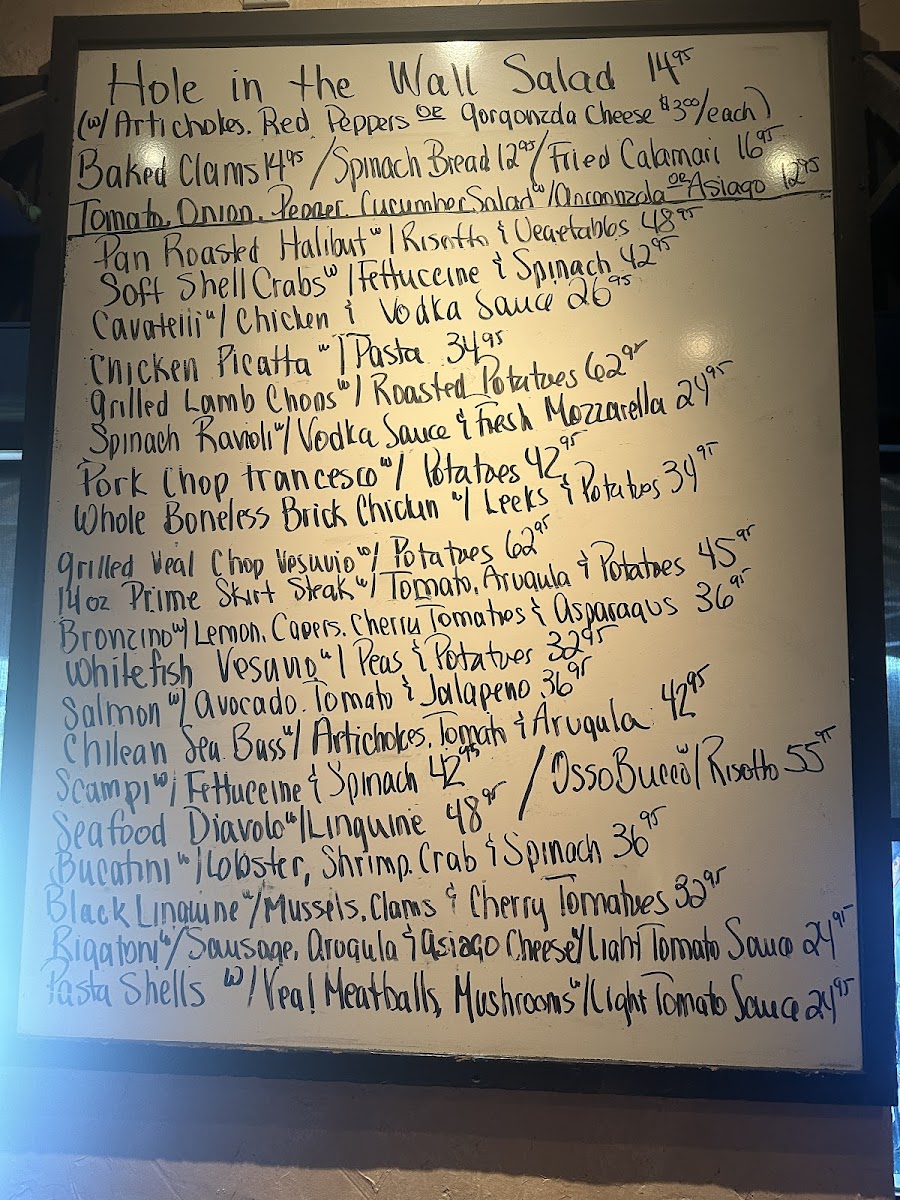 Hole in the Wall Salad 14.95
(w/Artichokes, Red Peppers OR gorgonzola Cheese $3.00/each)
Baked Clams 14.95 / Spinach Bread 12.95 / Fried Calamari 16.95
Tomato, Onion, Pepper, Cucumber Salad w/gorgonzola OR Asiago 12.95
Pan Roasted Halibut w/Risotto & Vegetables 48.95
Soft Shell Crabs w/Fettuccine & Spinach 42.95
Cavatelli w/Chicken & Vodka Sauce 26.95
Chicken Picatta w/Pasta 34.95
grilled Lamb Chops w/Roasted Potatoes 62.95
Spinach Ravioli w/Vodka Sauce & Fresh Mozzarella 24.95
Pork Chop francesco w/Potatoes 42.95
Whole Boneless Brick Chicken w/Leeks & Potatoes 34.95
grilled Veal Chop Vesuvio w/Potatoes 62.95
14oz Prime Skirt Steak w/Tomato, Arugula & Potatoes 45.95
Bronzino w/Lemon, Capers, Cherry Tomatoes & Asparagus 36.95
Whitefish Vesuvio w/Peas & Potatoes 32.95
Salmon w/Avocado, Tomato & Jalapeno 36.95
Chilean Sea Bass w/Artichokes, Tomato & Arugula 42.95
Scampi w/Fettuccine & Spinach 42.95 / Osso Bucco w/Risotto 55.95
Seafood Diavolo w/Linguine 48.95
Bucatini w/Lobster, Shrimp, Crab & Spinach 36.95
Black Linguine w/Mussels, Clams & Cherry Tomatoes 32.95
Rigatoni w/Sausage, arugula & asiago Cheese w/Light Tomato Sauce 24.95
Pasta Shells w/Veal Meatballs, Mushrooms w/Light Tomato Sauce 24.95